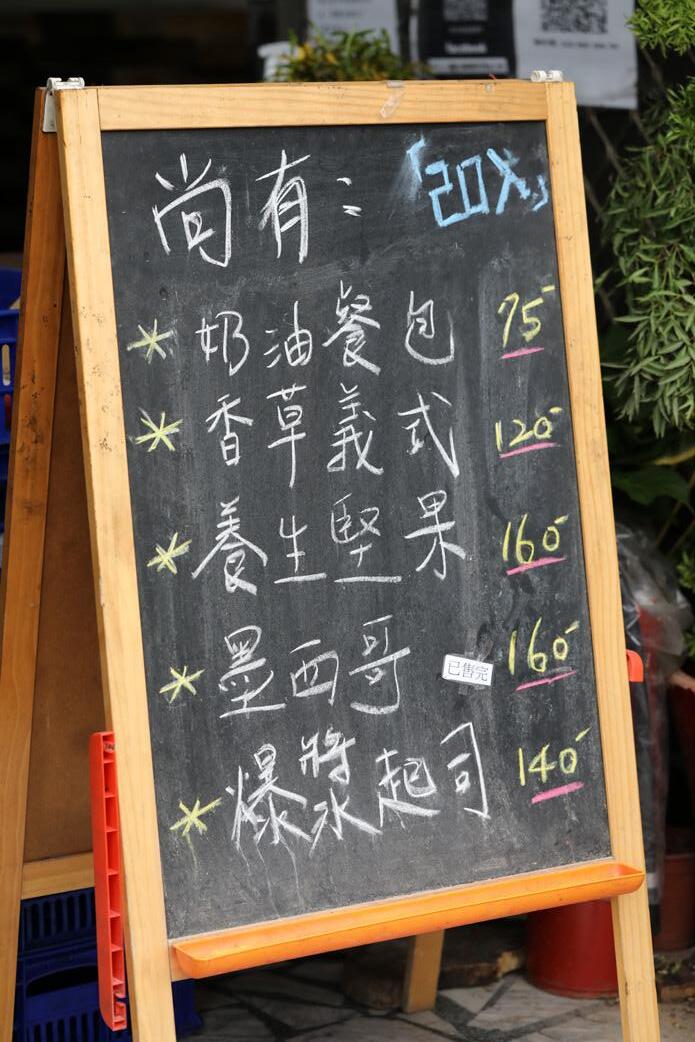 尚有： 「20入」
* 奶油餐包 75
* 香草義式 120
* 養生堅果 160
* 墨西哥 已售完 160
* 爆漿起司 140